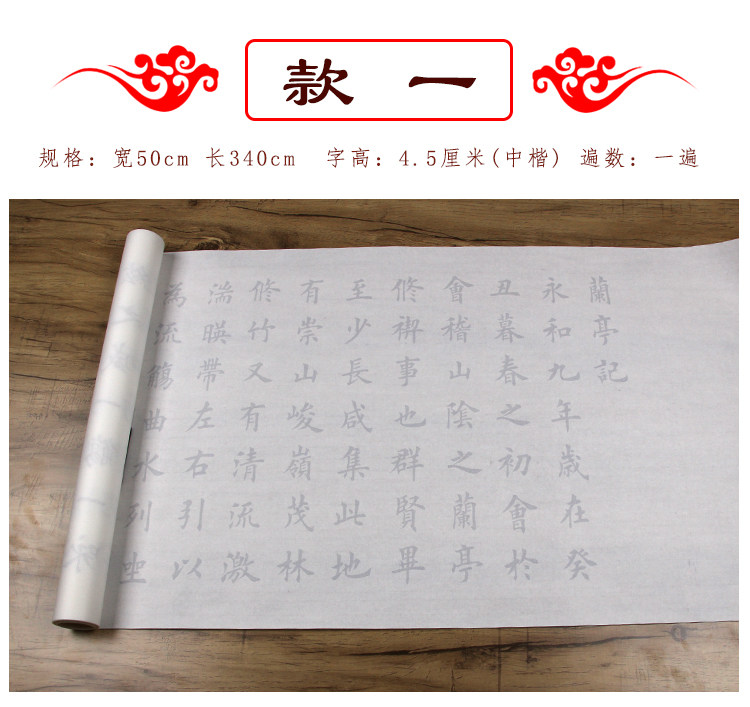 款 一
规格：宽50cm 长340cm 字高：4.5厘米(中楷) 遍数：一遍
蘭亭記
永和九年歲在癸
丑暮春之初會於
會稽山陰之蘭亭
修禊事也群賢畢
至少長咸集此地
有崇山峻嶺茂林
修竹又有清流激
湍暎帶左右引以
為流觴曲水列坐